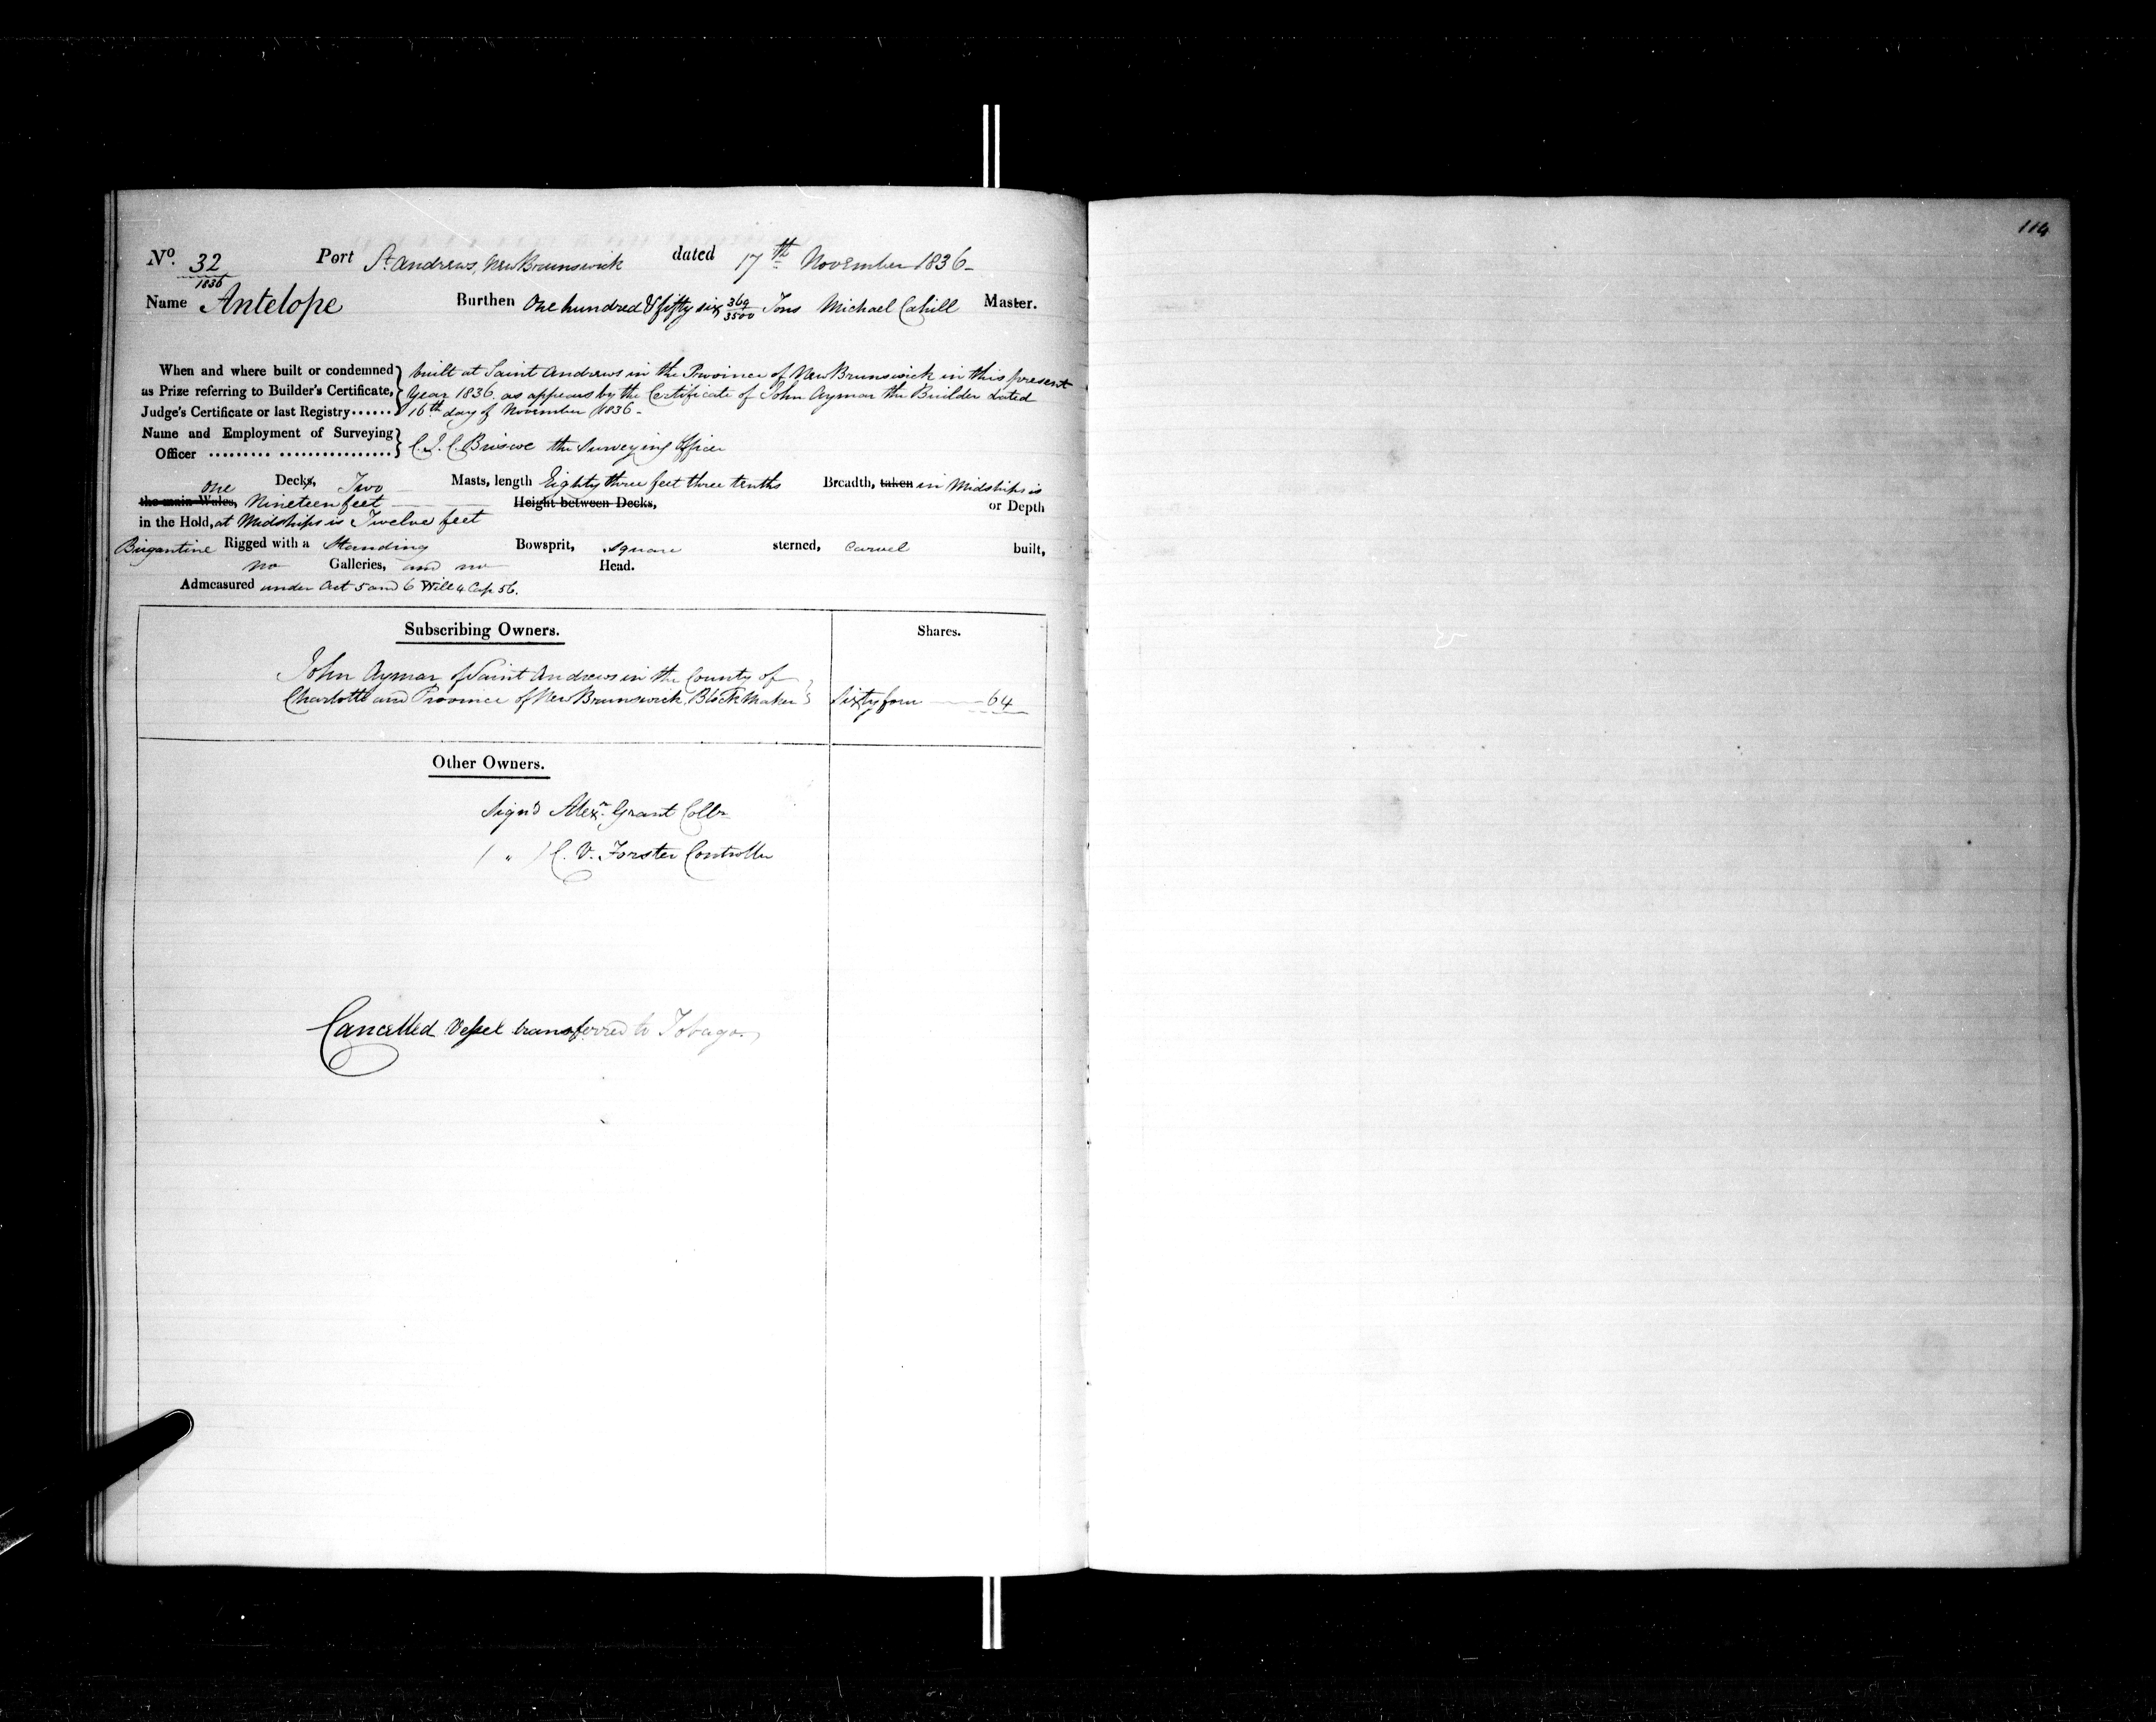 No. 32/1836 Port St. Andrews, New Brunswick dated 17th November 1836-
Name Antelope Burthen One hundred & fifty six 369/3500 Tons Michael Cahill Master.
When and where built or condemned as Prize referring to Builder's Certificate, Judge's Certificate or last Registry......
built at Saint Andrews in the Province of New Brunswick in this present
Year 1836. as appears by the Certificate of John Aymar the Builder dated
16th day of November 1836-
Name and Employment of Surveying Officer ......... ................
C. J. C. Briscoe the Surveying Officer
one Decks, Two Masts, length Eighty three feet three tenths Breadth, taken in Midships is
the main Wales, Nineteen feet Height between Decks, or Depth
in the Hold, at Midships is Twelve feet
Brigantine Rigged with a Standing Bowsprit, square sterned, carvel built,
no Galleries, and no Head.
Admeasured under Act 5 and 6 Will 4 Cap 56.
Subscribing Owners. Shares.
John Aymar of Saint Andrews in the County of
Charlotte and Province of New Brunswick, Block Maker Sixty four 64
Other Owners.
Sign'd Alexr. Grant Collr
( " ) C. V. Forster Controller
Cancelled Vessel transferred to Tobago.
114